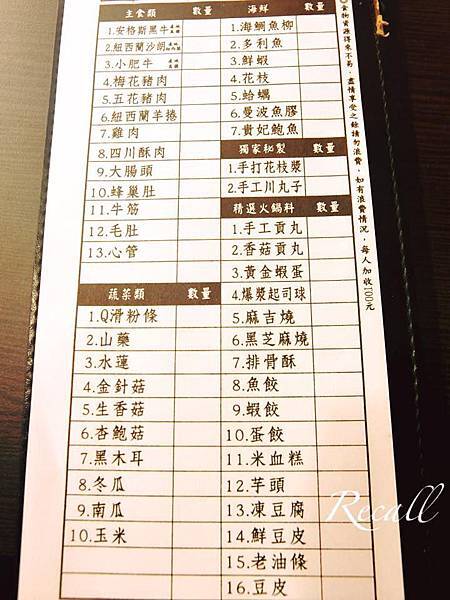 主食類 數量
1.安格斯黑牛
2.紐西蘭沙朗
3.小肥牛
4.梅花豬肉
5.五花豬肉
6.紐西蘭羊捲
7.雞肉
8.四川酥肉
9.大腸頭
10.蜂巢肚
11.牛筋
12.毛肚
13.心管
蔬菜類 數量
1.Q滑粉條
2.山藥
3.水蓮
4.金針菇
5.生香菇
6.杏鮑菇
7.黑木耳
8.冬瓜
9.南瓜
10.玉米
海鮮 數量
1.海鱺魚柳
2.多利魚
3.鮮蝦
4.花枝
5.蛤蠣
6.曼波魚膠
7.貴妃鮑魚
獨家秘製 數量
1.手打花枝漿
2.手工川丸子
精選火鍋料 數量
1.手工貢丸
2.香菇貢丸
3.黃金蝦蛋
4.爆漿起司球
5.麻吉燒
6.黑芝麻燒
7.排骨酥
8.魚餃
9.蝦餃
10.蛋餃
11.米血糕
12.芋頭
13.凍豆腐
14.鮮豆皮
15.老油條
16.豆皮
◎食物資源得來不易，盡情享受之餘請勿浪費，如有浪費情況，每人加收100元
Recall